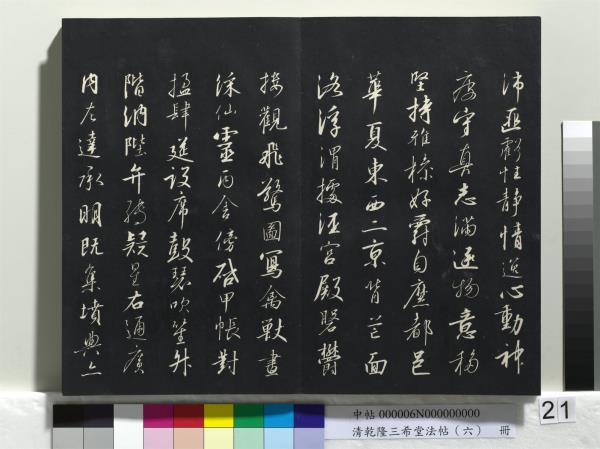 沛匪虧性静情逸心動神
疲守真志滿逐物意移
堅持雅操好爵自縻都邑
華夏東西二京背芒面
洛浮渭據涇宮殿磐鬱
樓觀飛驚圖寫禽獸畫
綵仙靈丙舍傍啓甲帳對
楹肆筵設席鼓瑟吹笙升
階納陛弁轉疑星右通廣
内左達承明既集墳典亦
中帖 000006N000000000
清乾隆三希堂法帖（六） 冊
21